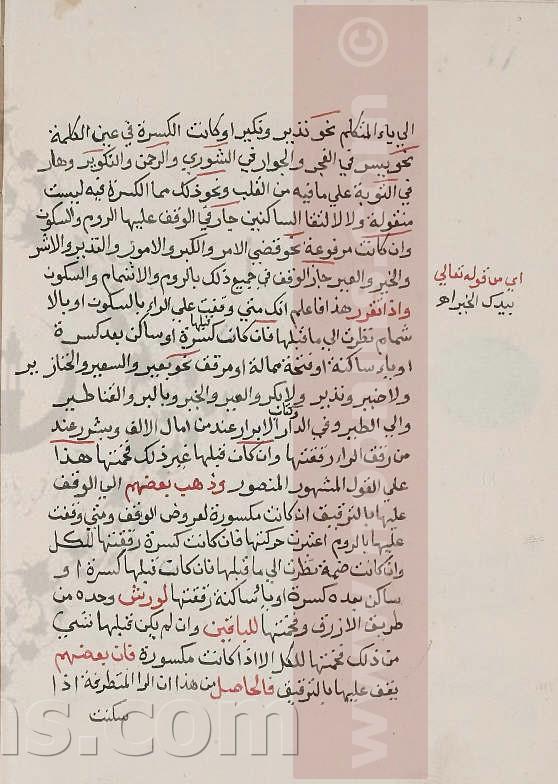 الى ياء المتكلم نحو نذير ونكير او كانت الكسرة في عين الكلمة
نحو يسر في الفجر والجوار في الشورى والرحمن والتكوير وهار
في التوبة على ما فيه من القلب ونحو ذلك مما الكسرة فيه ليست
منقولة ولا لالتقا الساكنين جاز في الوقف عليها الروم والسكون
وان كانت مرفوعة نحو قضي الامر والكبر والامور والنذر والاشر
والخير والعير جاز الوقف في جميع ذلك بالروم والاشمام والسكون
واذا تقرر هذا فاعلم انك متى وقفت على الرا بالسكون او بالا
شمام نظرت الى ما قبلها فان كان قبلها كسرة او ساكن بعد كسرة
او ياء ساكنة او فتحة ممالة او مرقق نحو بعير والسعير والخنازير
ولا ضير ونذير ولا بكر والعير والخير وبالبر والقناطير
والى الطير وفي الدار وكتاب الابرار عند من امال الالف وبشرر عند
من رقق الرا رققتها وان كان قبلها غير ذلك فخمتها هذا
على القول المشهور المنصور وذهب بعضهم الى الوقف
عليها بالترقيق ان كانت مكسورة لعروض الوقف ومتى وقفت
عليها بالروم اعتبرت حركتها فان كانت كسرة رققتها للكل
وان كانت ضمة نظرت الى ما قبلها فان كانت قبلها كسرة او
ساكن بعده كسرة او ياء ساكنة رققتها لورش وحده من
طريق الازرق وفخمتها للباقين وان لم يكن قبلها شيي
من ذلك فخمتها للكل الا اذا كانت مكسورة فان بعضهم
يقف عليها بالترقيق فالحاصل من هذا ان الرا المتطرفة اذا
سكنت
اي من قوله تعالى
بيدك الخير اهـ
www.
ns.com